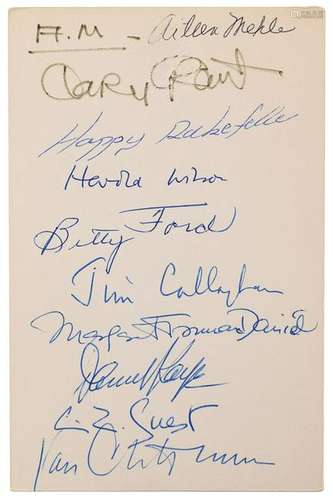 A.M — Aileen Mehle
Cary Grant
Happy Rockefeller
Harold Wilson
Betty Ford
Jim Callaghan
Margaret Truman Daniel
Danny Kaye
C. Z. Guest
Van